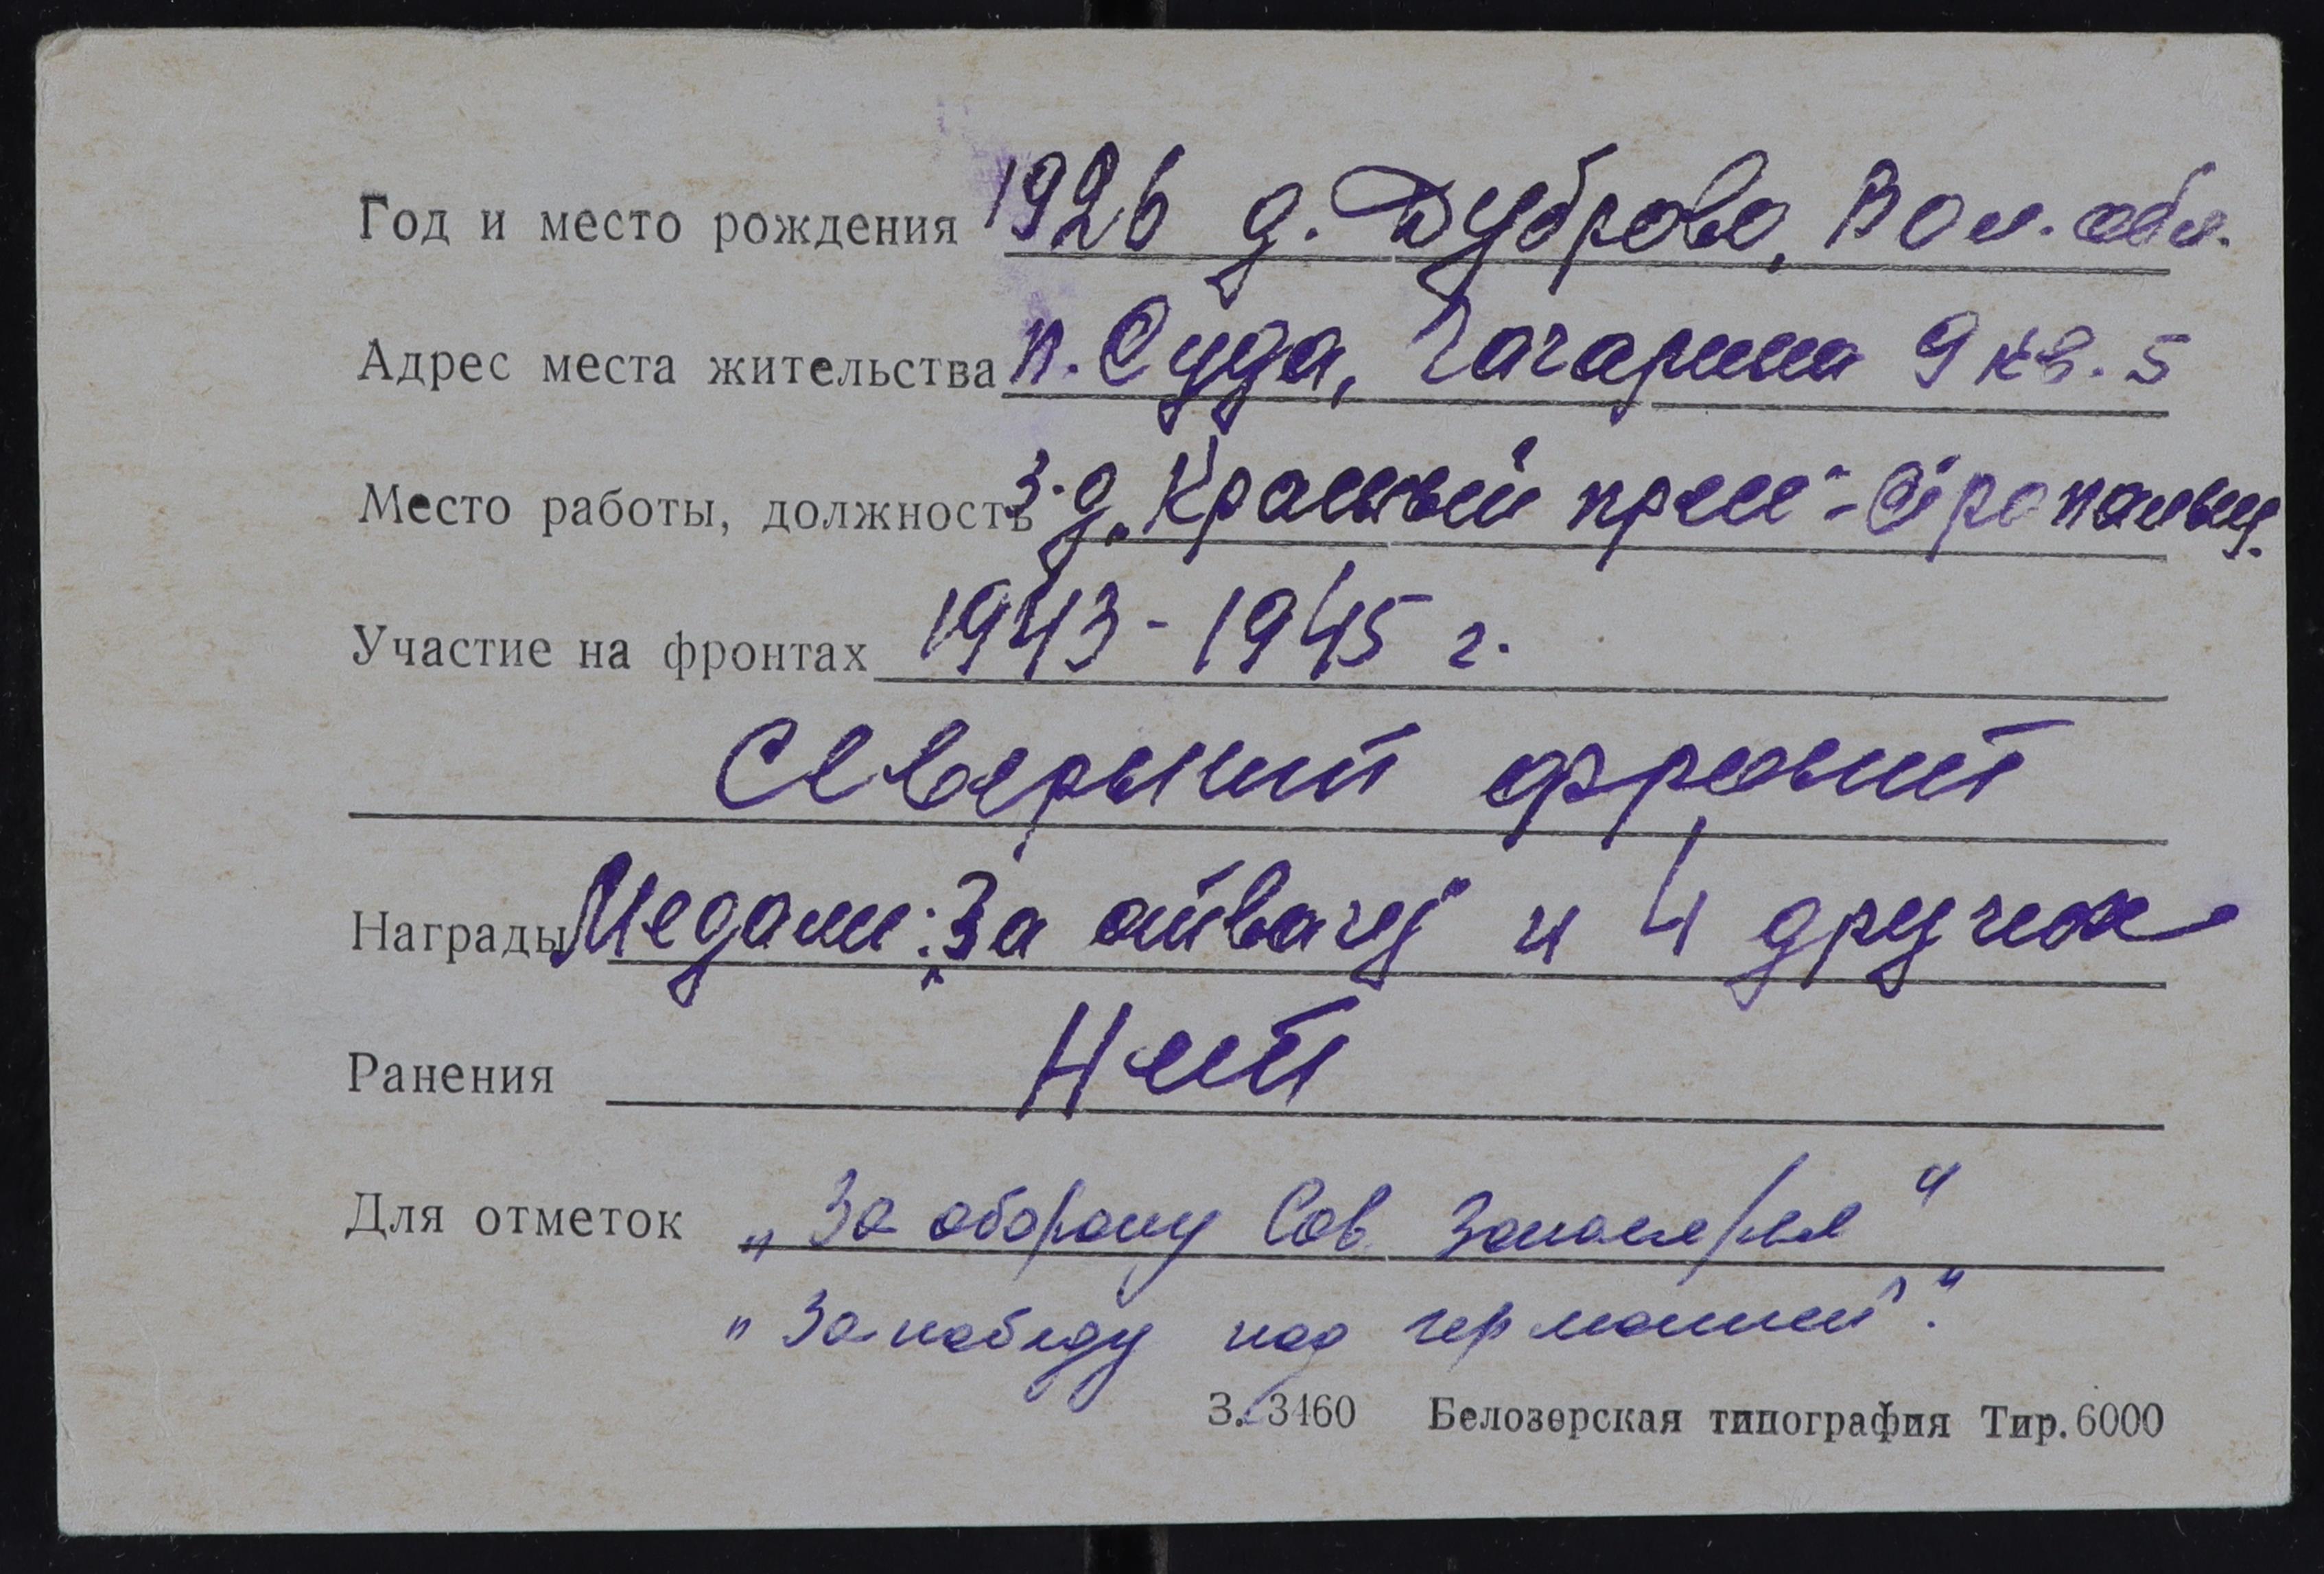 Год и место рождения 1926 д. Дуброво, Вол. обл.
Адрес места жительства п. Суда, Гагарина 9 кв. 5
Место работы, должность з-д „Красный
Участие на фронтах 1943 - 1945 г.
Северный фронт
Награды Медали: „За отвагу" и 4 других
Ранения Нет
Для отметок „За оборону Сов. Заполярья"
„За победу над германией".
З. 3460 Белозерская типография Тир. 6000